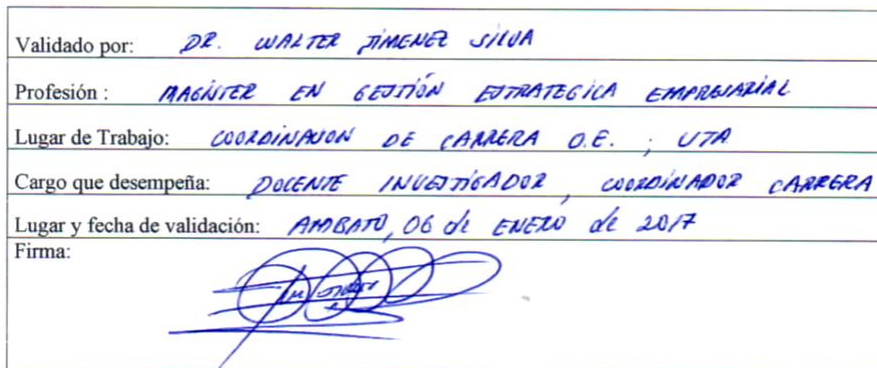 Validado por: DR. WALTER JIMENEZ SILVA
Profesión : MAGISTER EN GESTIÓN ESTRATEGICA EMPRESARIAL
Lugar de Trabajo: COORDINACION DE CARRERA O.E. ; UTA
Cargo que desempeña: DOCENTE INVESTIGADOR, COORDINADOR CARRERA
Lugar y fecha de validación: AMBATO, 06 de ENERO de 2017
Firma: